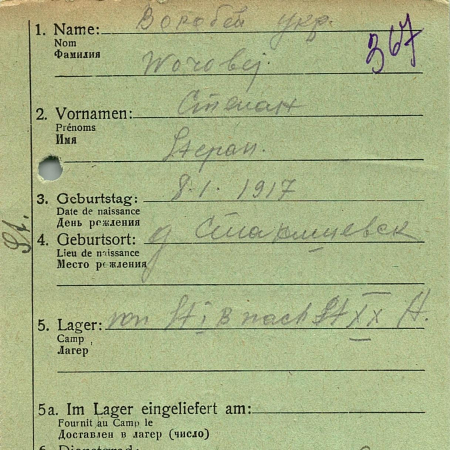 1. Name: Воробей укр.
Nom
Фамилия
367
Worobej.
2. Vornamen: Степан
Prénoms
Имя
Stepan.
3. Geburtstag: 8.1.1917
Date de naissance
День рождения
4. Geburtsort: д
Lieu de naissance
Место рождения
5. Lager: von St I B nach St XX A.
Camp
Лагер
5a. Im Lager eingeliefert am:
Fournit au Camp le
Доставлен в лагер (число)